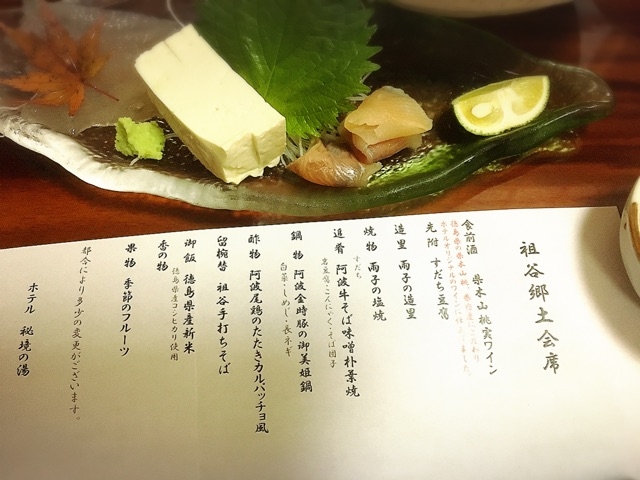 祖谷郷土会席
食前酒 県木山桃実ワイン
先附 すだち豆腐
造里 雨子の造里
焼物 雨子の塩焼
すだち
追肴 阿波牛そば味噌朴葉焼
岩豆腐・こんにゃく・そば団子
鍋物 阿波金時豚の御美姫鍋
白菜・しめじ・長ネギ
酢物 阿波尾鶏のたたきカルパッチョ風
留椀替 祖谷手打ちそば
御飯 徳島県産新米
徳島県産コシヒカリ使用
香の物
果物 季節のフルーツ
都合により多少の変更がございます。
ホテル 秘境の湯